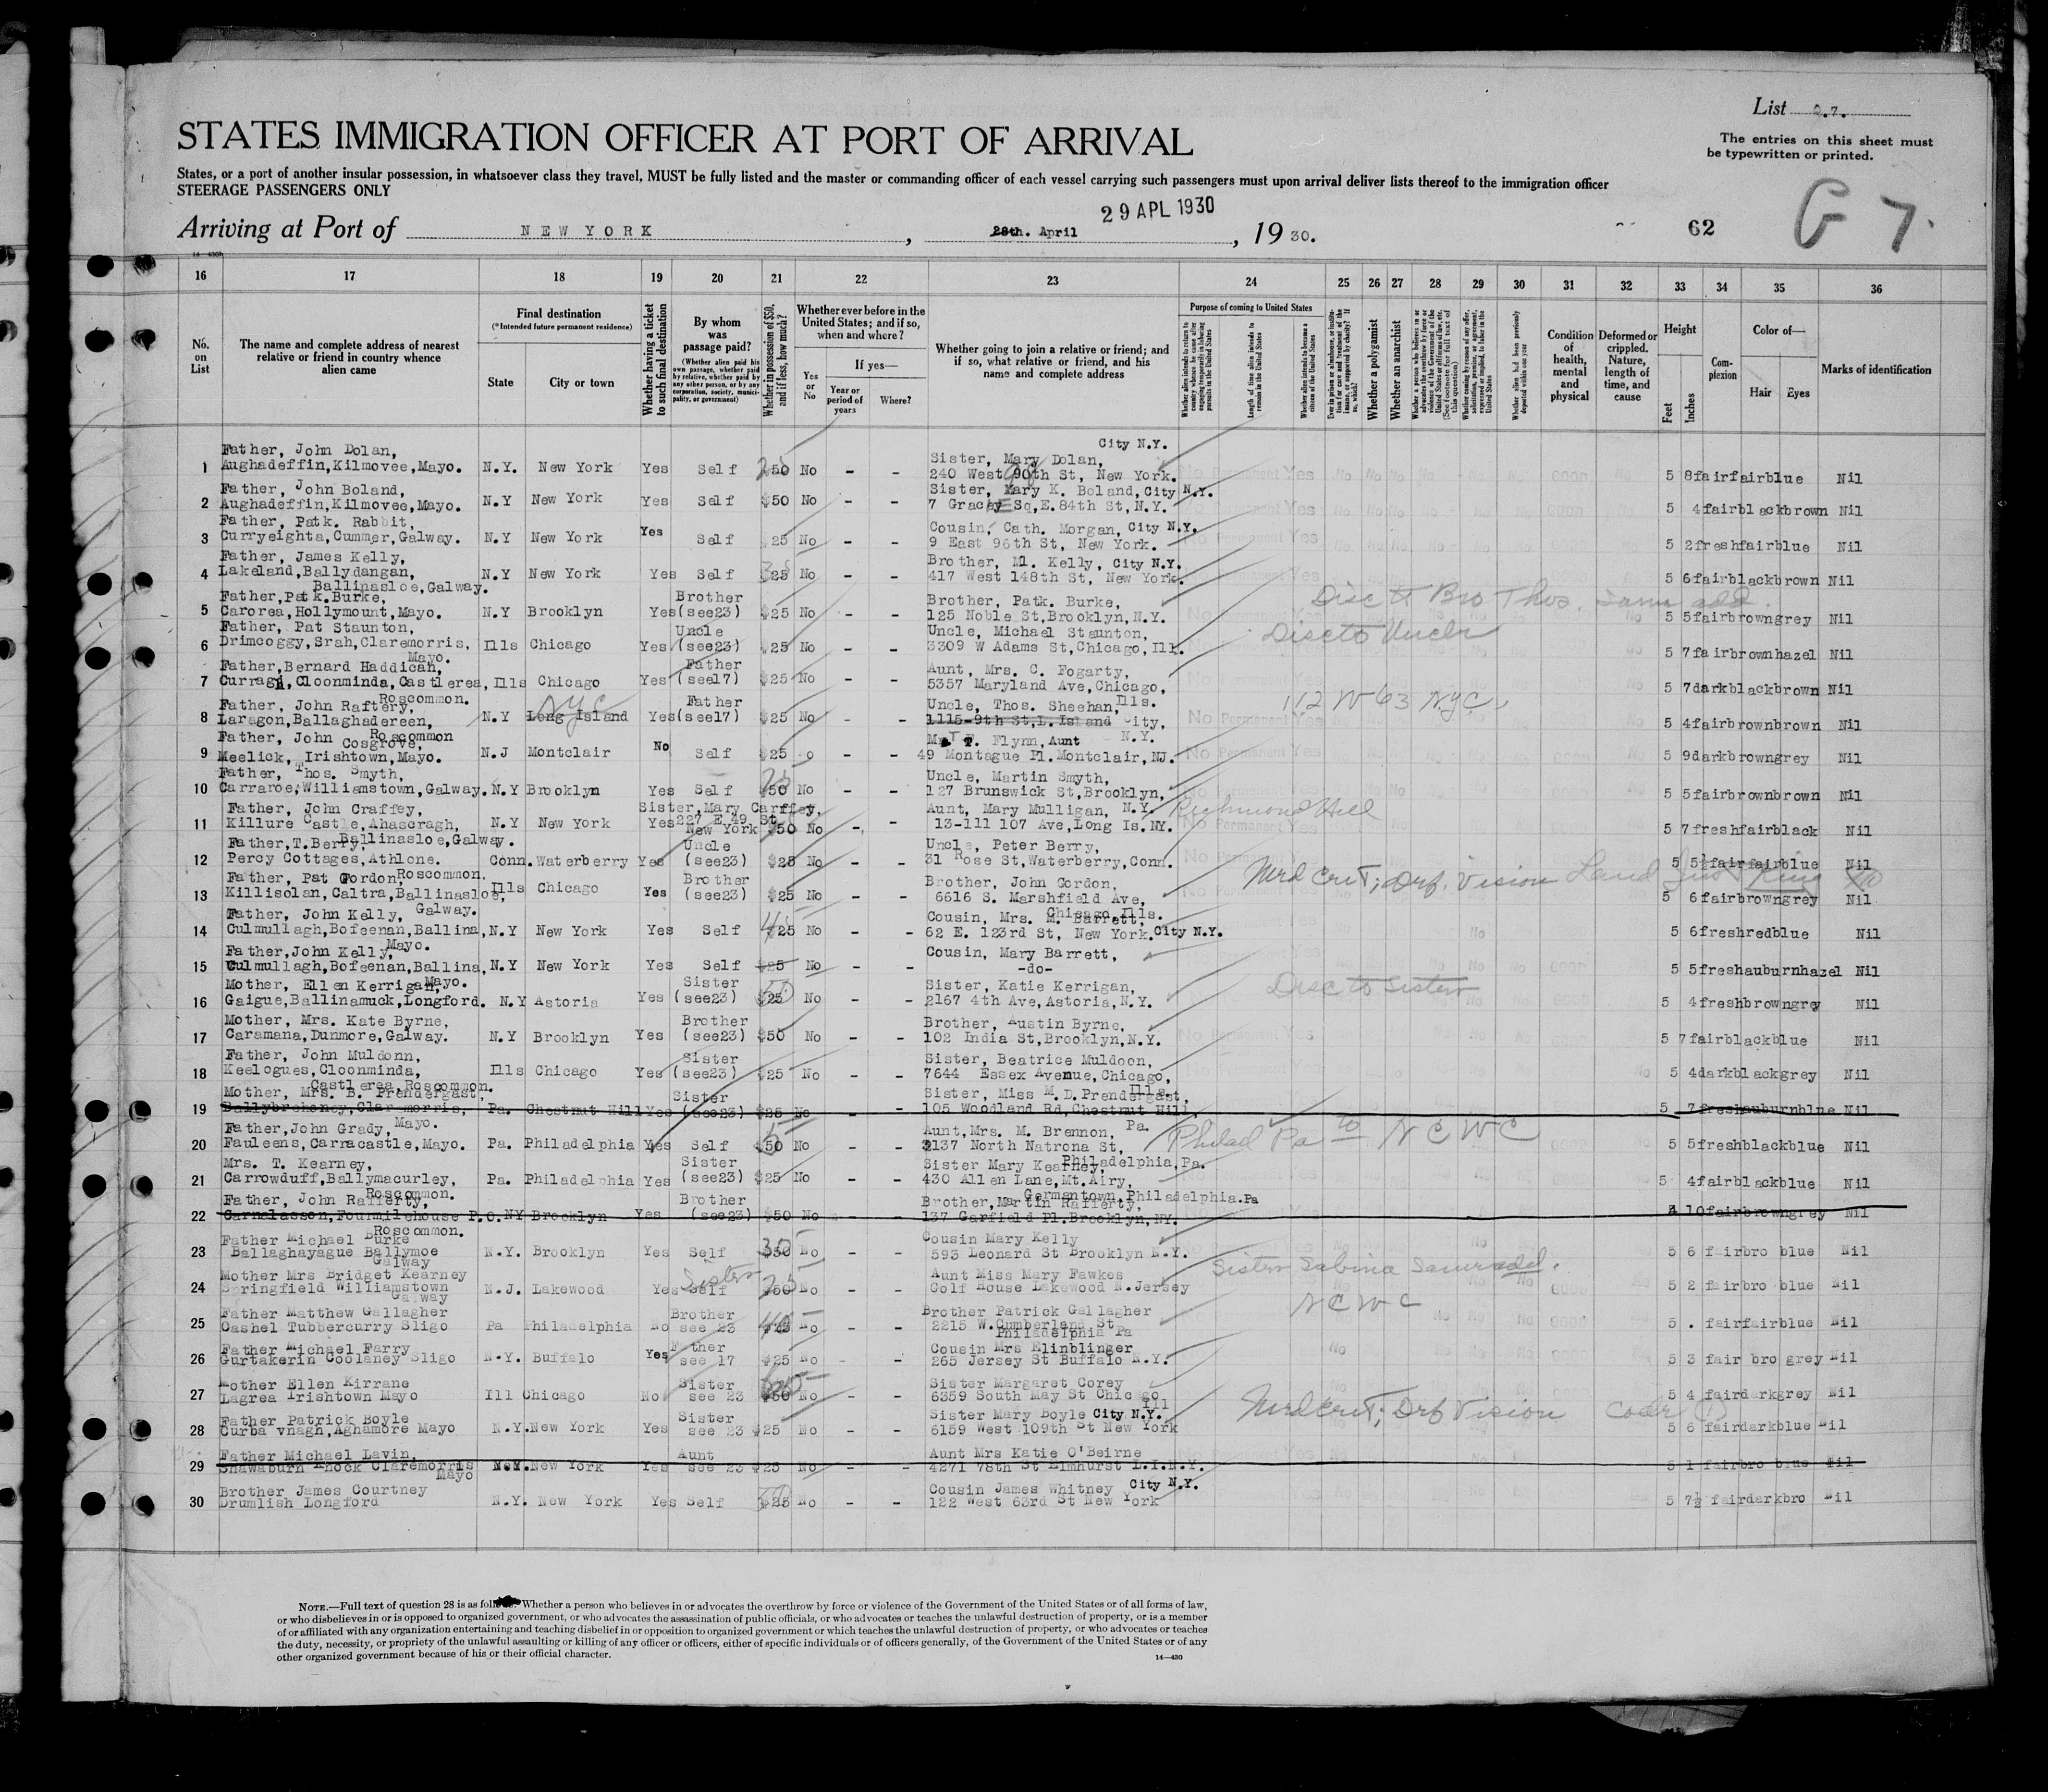 List 27.
STATES IMMIGRATION OFFICER AT PORT OF ARRIVAL
The entries on this sheet must
be typewritten or printed.
States, or a port of another insular possession, in whatsoever class they travel, MUST be fully listed and the master or commanding officer of each vessel carrying such passengers must upon arrival deliver lists thereof to the immigration officer
STEERAGE PASSENGERS ONLY
29 APL 1930
Arriving at Port of NEW YORK, 28th. April, 19 30.
62
G 7.
16 17 18 19 20 21 22 23 24 25 26 27 28 29 30 31 32 33 34 35 36
No. on List
The name and complete address of nearest relative or friend in country whence alien came
Final destination
(*Intended future permanent residence)
State
City or town
Whether having a ticket to such final destination
By whom was passage paid?
(Whether alien paid his own passage, whether paid by relative, whether paid by any other person, or by any corporation, society, municipality, or government)
Whether in possession of $50, and if less, how much?
Whether ever before in the United States; and if so, when and where?
Yes or No
If yes—
Year or period of years
Where?
Whether going to join a relative or friend; and if so, what relative or friend, and his name and complete address
Purpose of coming to United States
Whether a polygamist
Whether an anarchist
Condition of health, mental and physical
Deformed or crippled. Nature, length of time, and cause
Height
Feet
Inches
Complexion
Color of—
Hair
Eyes
Marks of identification
City N.Y.
1 Father, John Dolan, Aughadeffin,Kilmovee,Mayo. N.Y. New York Yes Self 50 No - - Sister, Mary Dolan, 240 West 90th St, New York. 5 8 fair fair blue Nil
2 Father, John Boland, Aughadeffin,Kilmovee,Mayo. N.Y New York Yes Self $50 No - - Sister, Mary K. Boland,City N.Y. 7 Gracey Sq,E.84th St,N.Y. 5 4 fair black brown Nil
3 Father, Patk. Rabbit, Curryeighta,Cummer,Galway. N.Y New York Yes Self $25 No - - Cousin, Cath. Morgan, City N.Y. 9 East 96th St, New York. 5 2 fresh fair blue Nil
4 Father, James Kelly, Lakeland,Ballydangan, Ballinasloe,Galway. N.Y New York Yes Self $25 No - - Brother, Ml. Kelly, City N.Y. 417 West 148th St, New York. 5 6 fair black brown Nil
5 Father,Patk.Burke, Carorea,Hollymount,Mayo. N.Y Brooklyn Yes Brother (see23) $25 No - - Brother, Patk. Burke, 125 Noble St,Brooklyn,N.Y. Disc to Bro Thos. same add. 5 5 fair brown grey Nil
6 Father, Pat Staunton, Drimcoggy,Srah,Claremorris, Mayo. Ills Chicago Yes Uncle (see23) $25 No - - Uncle, Michael Staunton, 3309 W Adams St,Chicago,Ill. Disc to Uncle 5 7 fair brown hazel Nil
7 Father,Bernard Haddican, Curragh,Cloonminda,Castlerea, Roscommon. Ills Chicago Yes Father (see17) $25 No - - Aunt, Mrs. C. Fogarty, 5357 Maryland Ave,Chicago, Ills. 5 7 dark black brown Nil
8 Father, John Raftery, Laragon,Ballaghadereen, Roscommon N.Y Long Island NYC Yes Father (see17) $25 No - - Uncle, Thos. Sheehan, 1115-9th St,L.Island City, N.Y. 112 W 63 NYC. 5 4 fair brown brown Nil
9 Father, John Cosgrove, Meelick, Irishtown,Mayo. N.J Montclair No Self $25 o - - T. Flynn, Aunt 49 Montague Pl.Montclair,NJ. 5 9 dark brown grey Nil
10 Father, Thos. Smyth, Carraroe,Williamstown,Galway. N.Y Brooklyn Yes Self $50 No - - Uncle, Martin Smyth, 127 Brunswick St,Brooklyn, N.Y. 5 5 fair brown brown Nil
11 Father, John Craffey, Killure Castle,Ahascragh, Ballinasloe,Galway. N.Y New York Yes Sister,Mary Carffey, 227 E.49 St. New York $50 No - - Aunt, Mary Mulligan, 13-111 107 Ave,Long Is.NY. Richmond Hill 5 7 fresh fair black Nil
12 Father,T.Berry, Percy Cottages,Athlone. Roscommon. Conn. Waterberry Yes Uncle (see23) $25 No - - Uncle, Peter Berry, 31 Rose St,Waterberry,Conn. 5 5½ fair fair blue Nil
13 Father, Pat Gordon, Killisolan,Caltra,Ballinasloe, Galway. Ills Chicago Yes Brother (see23) $25 No - - Brother, John Gordon, 6616 S. Marshfield Ave, Chicago,Ills. Med Cert; Def. Vision 5 6 fair brown grey Nil
14 Father, John Kelly, Culmullagh,Bofeenan,Ballina, Mayo. N.Y New York Yes Self $25 No - - Cousin, Mrs. M. Barrett, 62 E. 123rd St, New York. City N.Y. 5 6 fresh red blue Nil
15 Father,John Kelly, Culmullagh,Bofeenan,Ballina, Mayo. N.Y New York Yes Self $25 No - - Cousin, Mary Barrett, -do- 5 5 fresh auburn hazel Nil
16 Mother, Ellen Kerrigan, Gaigue,Ballinamuck,Longford. N.Y Astoria Yes Sister (see23) $25 50 No - - Sister, Katie Kerrigan, 2167 4th Ave,Astoria,N.Y. Disc to Sister 5 4 fresh brown grey Nil
17 Mother, Mrs. Kate Byrne, Caramana,Dunmore,Galway. N.Y Brooklyn Yes Brother (see23) $50 No - - Brother, Austin Byrne, 102 India St,Brooklyn,N.Y. 5 7 fair black blue Nil
18 Father, John Muldonn, Keelogues,Cloonminda, Castlerea,Roscommon. Ills Chicago Yes Sister (see23) $25 No - - Sister, Beatrice Muldoon, 7644 Essex Avenue,Chicago, Ills. 5 4 dark black grey Nil
19 Mother, Mrs. B. Prendergast, Ballybreheney,Claremorris, Mayo. Pa. Chestnut Hill Yes Sister (see23) $25 No - - Sister, Miss M.D.Prendergast, 105 Woodland Rd,Chestnut Hill, Pa. 5 7 fresh auburn blue Nil
20 Father,John Grady, Fauleens,Carracastle,Mayo. Pa. Philadelphia Yes Self $50 No - - Aunt,Mrs. M. Brennon, 2137 North Natrona St, Philadelphia,Pa. Philad Pa to NCWC 5 5 fresh black blue Nil
21 Mrs. T. Kearney, Carrowduff,Ballymacurley, Roscommon. Pa. Philadelphia Yes Sister (see23) $25 No - - Sister Mary Kearney, 430 Allen Lane,Mt.Airy, Germantown,Philadelphia.Pa 5 4 fair black blue Nil
22 Father, John Rafferty, Carnalasson,Fourmilehouse P.O. Roscommon. NY Brooklyn Yes Brother (see23) $50 No - - Brother,Martin Rafferty, 137 Garfield Pl.Brooklyn,NY. 4 10 fair brown grey Nil
23 Father Michael Burke Ballaghayague Ballymoe Galway N.Y. Brooklyn Yes Self $30 No - - Cousin Mary Kelly 593 Leonard St Brooklyn N.Y. 5 6 fair bro blue Nil
24 Mother Mrs Bridget Kearney Springfield Williamstown Galway N.J. Lakewood Yes Sister Self $50 No - - Aunt Miss Mary Fawkes Golf House Lakewood N.Jersey Sister Sabina same add. 5 2 fair bro blue Nil
25 Father Matthew Gallagher Cashel Tubbercurry Sligo Pa Philadelphia No Brother see 23 $25 No - - Brother Patrick Gallagher 2215 W.Cumberland St Philadelphia Pa NCWC 5 . fair fair blue Nil
26 Father Michael Farry Gurtakerin Coolaney Sligo N.Y. Buffalo Yes Father see 17 $25 No - - Cousin Mrs Klinblinger 265 Jersey St Buffalo N.Y. 5 3 fair bro grey Nil
27 Mother Ellen Kirrane Lagrea Irishtown Mayo Ill Chicago No Sister see 23 $50 No - - Sister Margaret Corey 6359 South May St Chicago Ill 5 4 fair dark grey Nil
28 Father Patrick Boyle Curba vnagh,Aghamore Mayo N.Y. New York Yes Sister see 23 $25 No - - Sister Mary Boyle City N.Y. 6159 West 109th St New York Med Cert; Def Vision 5 6 fair dark blue Nil
29 Father Michael Lavin, Shawaburn Knock Claremorris Mayo N.Y. New York Yes Aunt see 23 $25 No - - Aunt Mrs Katie O'Beirne 4271 78th St Elmhurst L.I.N.Y. 5 1 fair bro blue Nil
30 Brother James Courtney Drumlish Longford N.Y. New York Yes Self $25 No - - Cousin James Whitney City N.Y. 122 West 63rd St New York 5 7½ fair dark bro Nil
NOTE.—Full text of question 28 is as follows: Whether a person who believes in or advocates the overthrow by force or violence of the Government of the United States or of all forms of law,
or who disbelieves in or is opposed to organized government, or who advocates the assassination of public officials, or who advocates or teaches the unlawful destruction of property, or is a member
of or affiliated with any organization entertaining and teaching disbelief in or opposition to organized government or which teaches the unlawful destruction of property, or who advocates or teaches
the duty, necessity, or propriety of the unlawful assaulting or killing of any officer or officers, either of specific individuals or of officers generally, of the Government of the United States or of any
other organized government because of his or their official character.
14—430